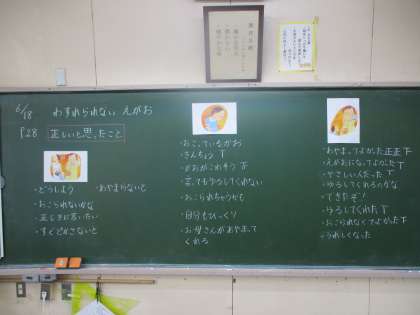 6/18 わすれられない えがお
P28 正しいと思ったこと
・どうしよう
・あやまらないと
・おこられないかな
・正じきに言いたい
・すぐどかさないと
・おこっているかお
・きんちょう T
・かおがこわそう T
・言ってもゆるしてくれない
・おこられちゃうかも
・自分もびっくり
・お母さんがあやまって
くれる
・あやまってよかった 正正 T
・えがおになってよかった T
・やさしい人だった T
・ゆるしてくれるのかな
・できたぞ!
・ゆるしてくれた T
・おこられなくてよかった T
・うれしくなった